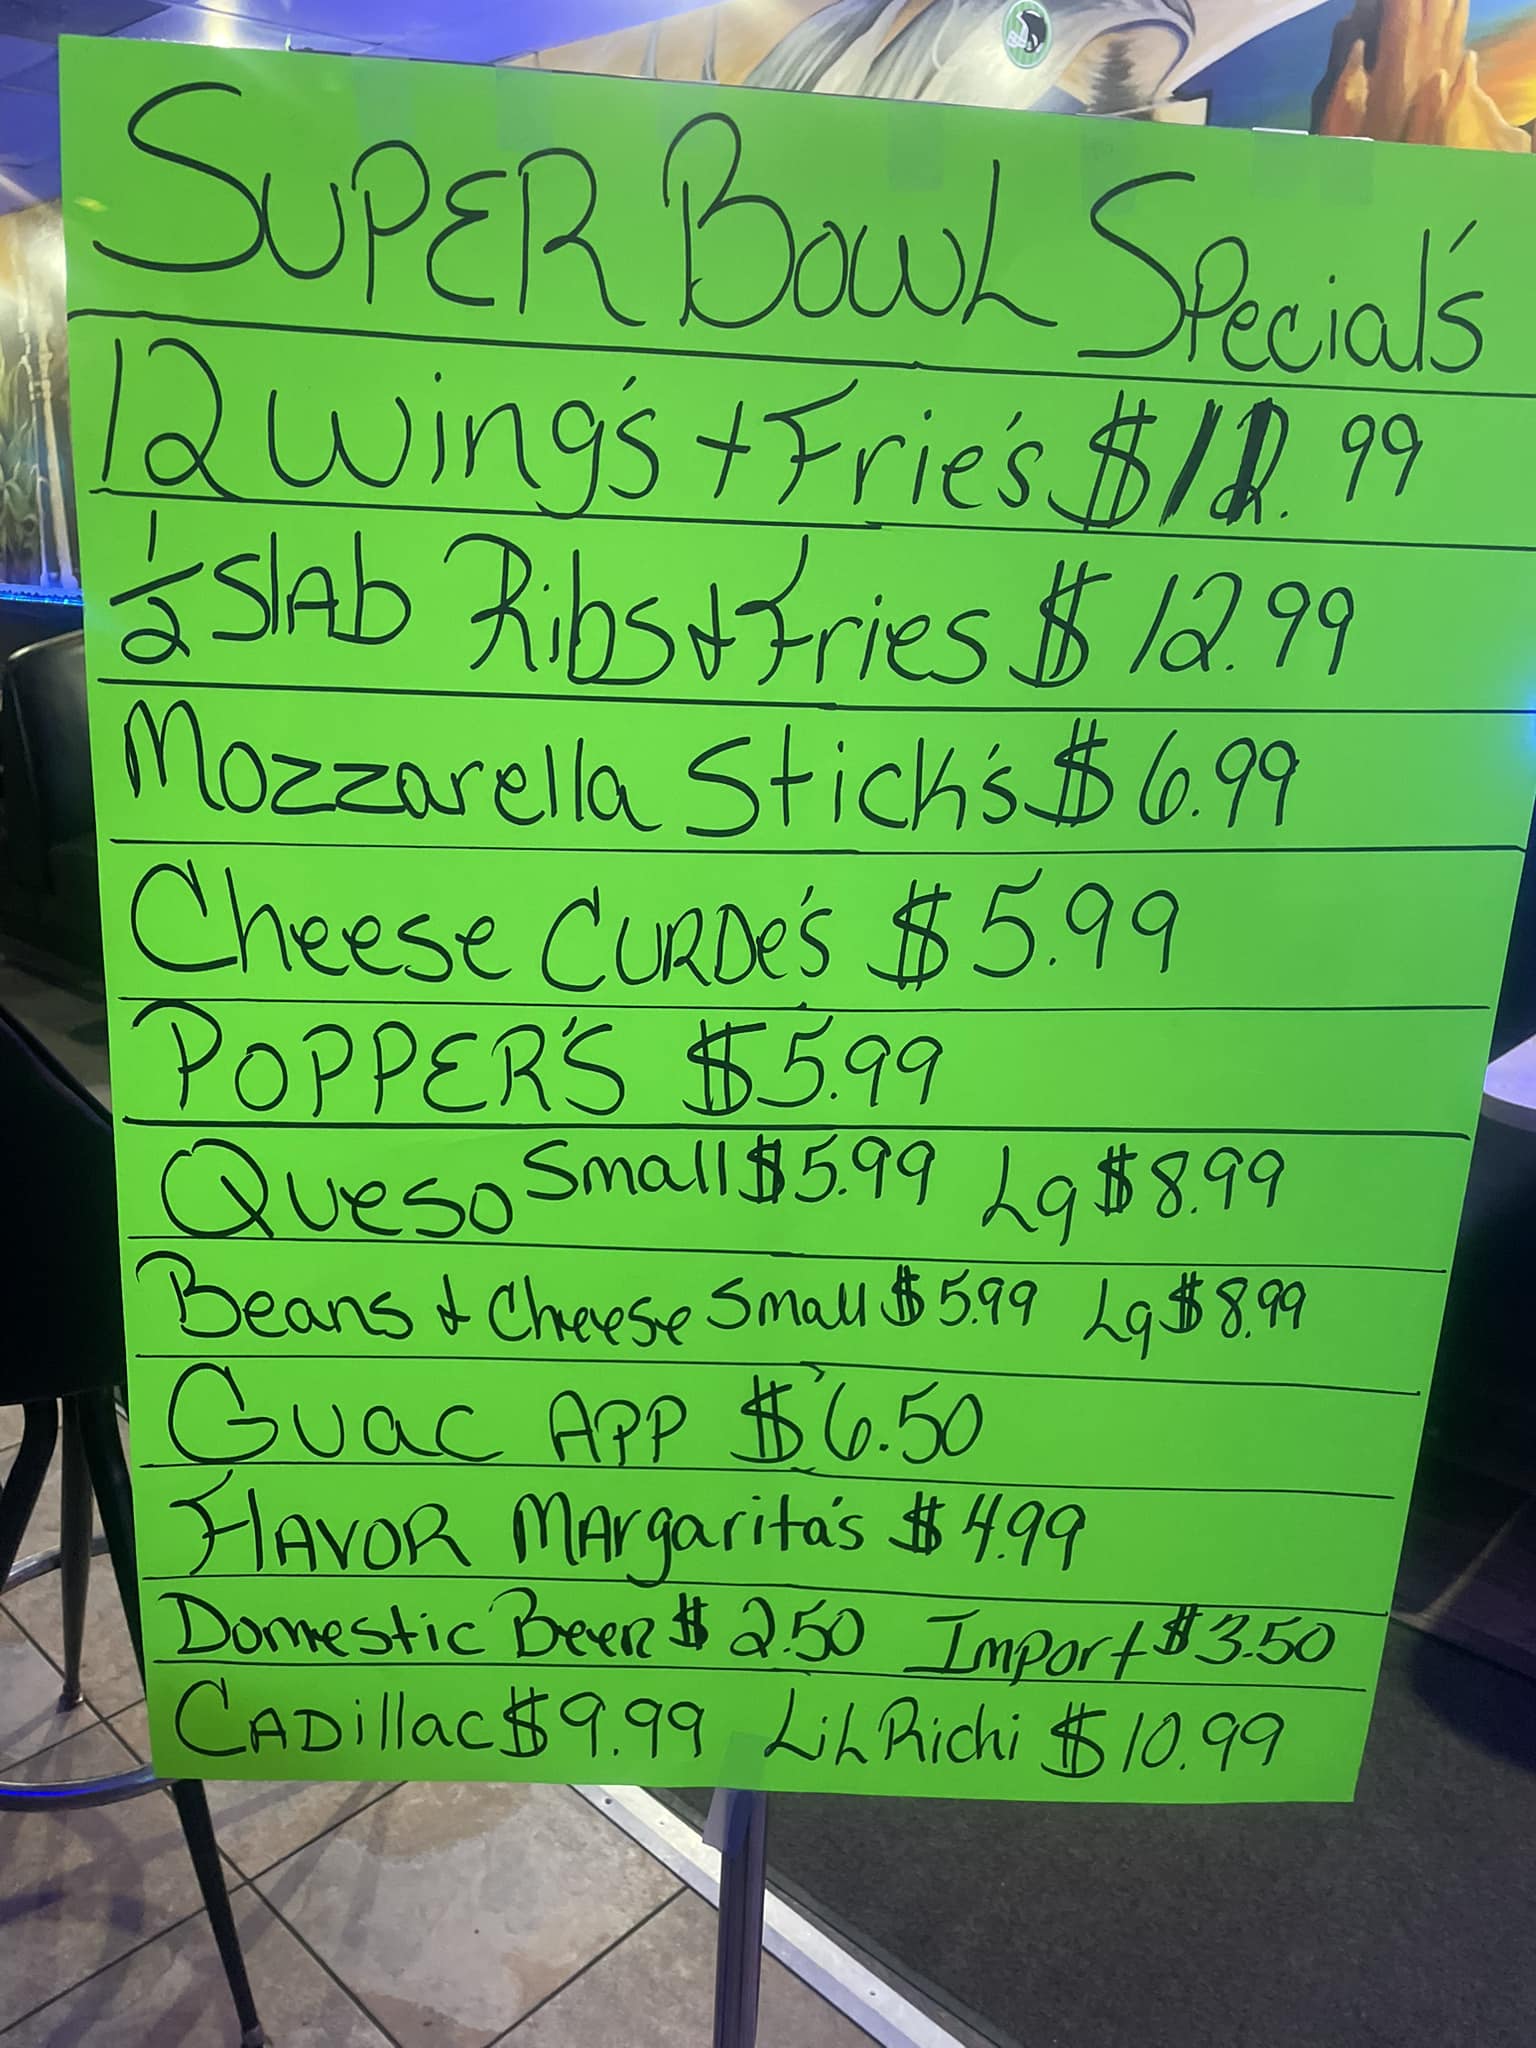 SUPER BOWL SPecial's
12 Wing's + Frie's $12.99
1/2 SlAb Ribs & Fries $12.99
Mozzarella Stick's $6.99
Cheese CURDe's $5.99
POPPER'S $5.99
Queso Small $5.99 Lg $8.99
Beans & Cheese Small $5.99 Lg $8.99
Guac APP $6.50
FlAVOR MArgarita's $4.99
Domestic Beer $2.50 Import $3.50
CADillac $9.99 LiL Richi $10.99